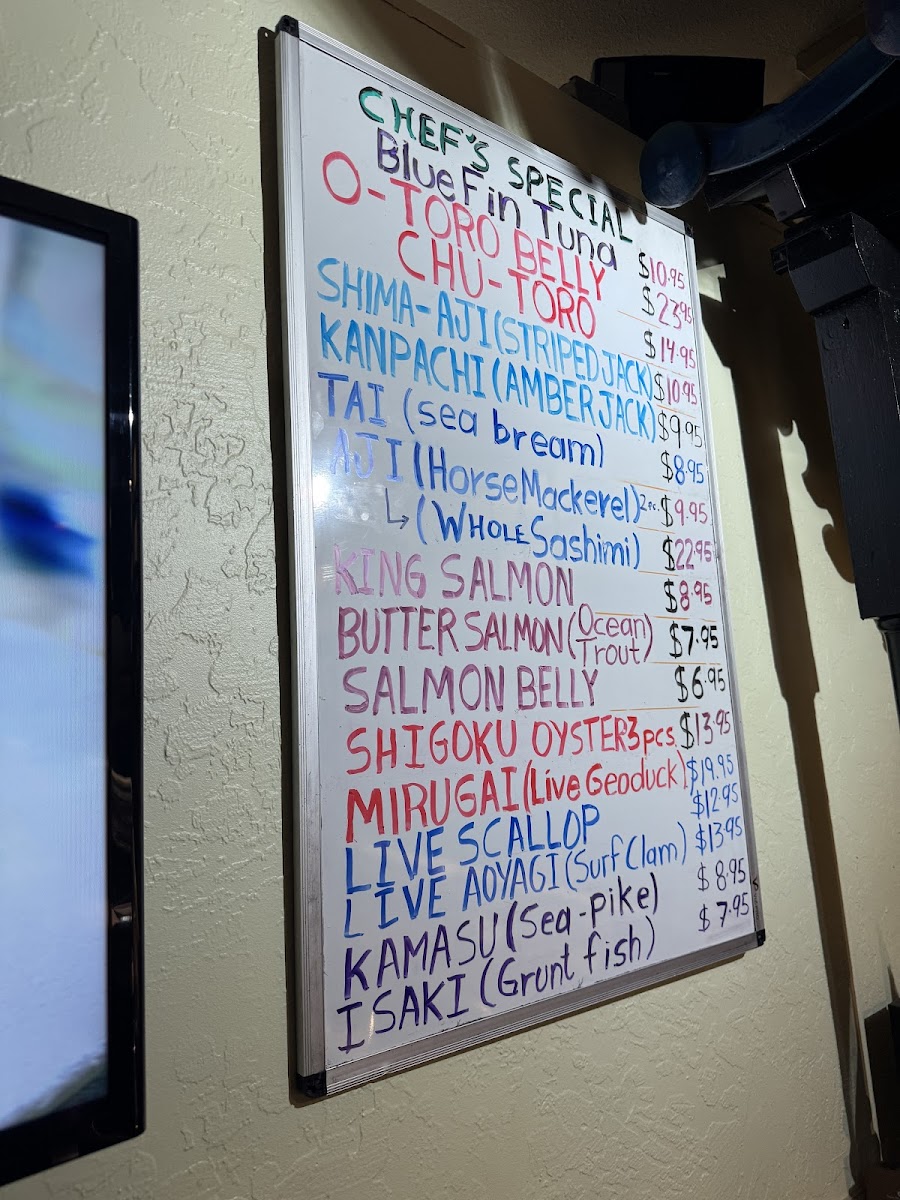 CHEF'S SPECIAL
BlueFin Tuna $10.95
O-TORO BELLY $23.95
CHU-TORO $14.95
SHIMA-AJI (STRIPED JACK) $10.95
KANPACHI (AMBER JACK) $9.95
TAI (sea bream) $8.95
AJI (Horse Mackerel) 2pc. $9.95
↳ (WHOLE Sashimi) $22.95
KING SALMON $8.95
BUTTER SALMON (Ocean Trout) $7.95
SALMON BELLY $6.95
SHIGOKU OYSTER 3pcs. $13.95
MIRUGAI (Live Geoduck) $19.95
LIVE SCALLOP $12.95
LIVE AOYAGI (Surf Clam) $13.95
KAMASU (Sea-pike) $8.95
ISAKI (Grunt fish) $7.95